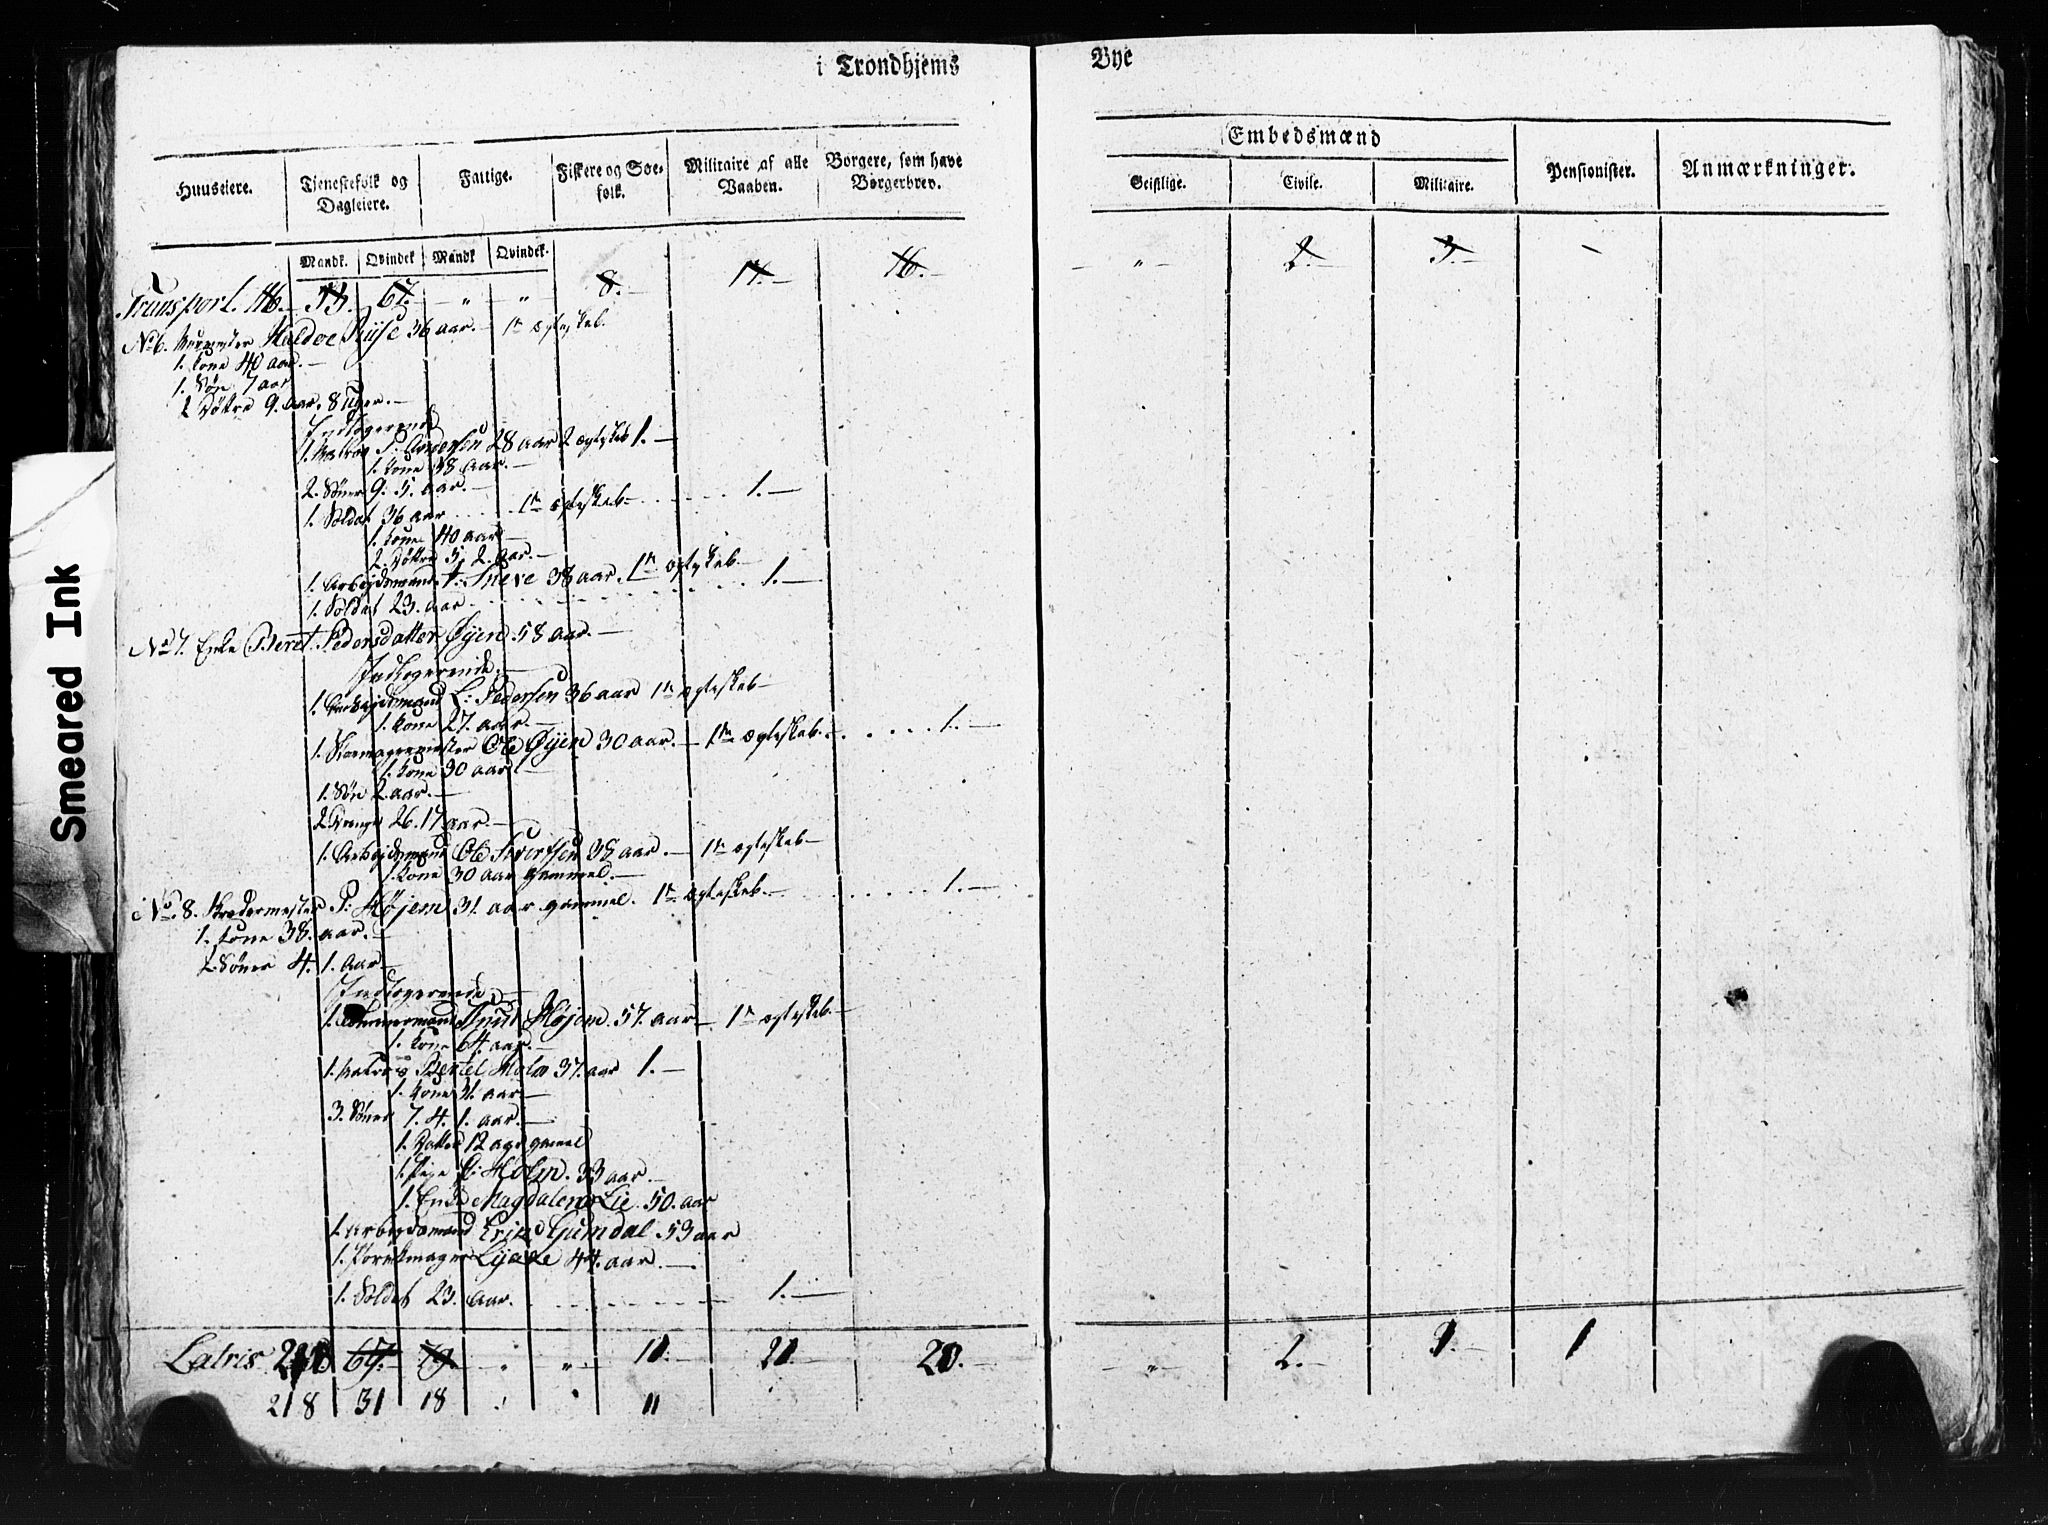 i Trondhjems Bye
Embedsmænd
Huuseiere. Tjenestefolk og Dagleiere. Fattige. Fiskere og Søefolk. Militaire af alle Vaaben. Borgere, som have Borgerbrev. Geistlige. Civile. Militaire. Pensionister. Anmærkninger.
Mandk. Qvindek Mandk Qvindek.
Transport. 67. — " — " — 8. — 16. — " — 2. — 3. —
No 6. Haldoe Riise 36 aar. — 1te ægteskab.
1. Kone 40 aar. —
1. Søn 7 aar
2 Døttre 9. aar. 8 Uger. —
Indlogerende
1. Matros P: Andersen 28 aar 2 ægteskab 1. —
1. Kone 38 aar. —
2. Sønner 9. 5. aar. —
1. Soldat 36 aar 1te ægteskab — 1. —
1. Kone 40 aar —
2. Døttre 5. 2. aar. —
1. Arbejdsmand 38 aar. 1te ægteskab —
1. Soldat 23. aar 1. —
No 7. Enke Beret Pedersdatter Øyen 58 aar. —
Indlogerende. —
1. Arbejdsmand L: Pedersen 36 aar 1te ægteskab —
1. Kone 27. aar. —
1. Skomagermester Ole Øyen 30 aar. — 1te ægteskab. — 1. —
1. Kone 30 aar —
1. Søn 2. aar. —
2 Drenge 26. 17 aar. —
1. Arbejdsmand Ole Sivertsen 38 aar. — 1te ægteskab —
1. Kone 30 aar gammel. —
No. 8. Skredermester P: Højem 31. aar gammel. 1te ægteskab. — 1. —
1. Kone 38. aar. —
2 Sønner 4. 1. Aar —
Indlogerende. —
1. Tømmermand Knut Højem. 57. aar — 1te ægteskab. —
1. Kone 64. aar. —
1. Matros Bertel Holm 37. aar 1. —
1. Kone 31. aar —
3. Sønner 7. 4. 1. aar. —
1. Datter 12 aar gamel
1. Pige Holm. 33 aar. —
1. Enke Magdalena Lie. 50. aar
1. Arbejdsmand 53 aar
1. 44. aar. —
1. Soldat 23. Aar. 1. —
Latris 67. — 79 — " — " — 11. — 21 — 20. — " — 2. — 1
218 31 18 11
Smeared Ink